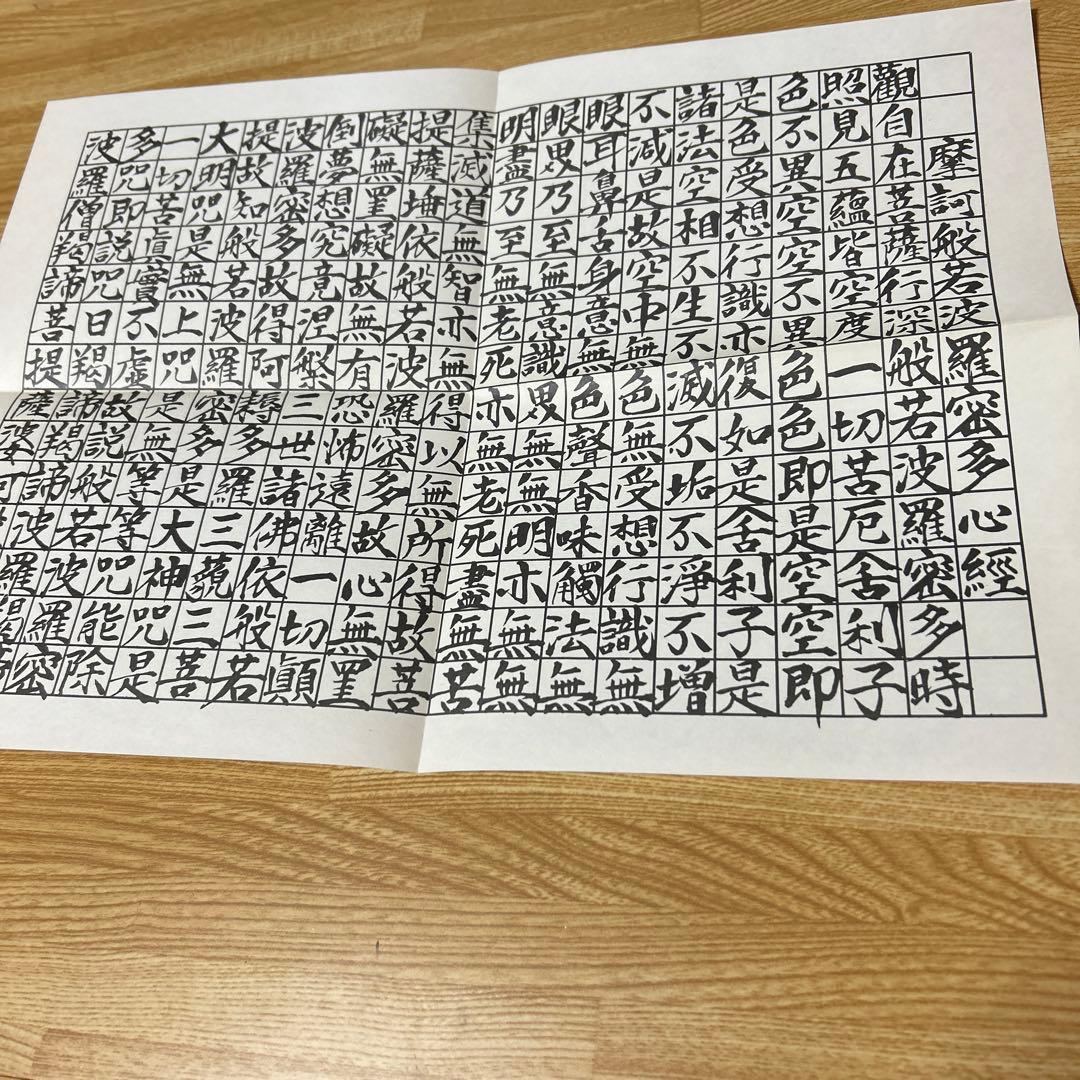 摩訶般若波羅密多心經
觀自在菩薩行深般若波羅密多時
照見五蘊皆空度一切苦厄舍利子
色不異空空不異色色即是空空即
是色受想行識亦復如是舍利子是
諸法空相不生不滅不垢不淨不增
不減是故空中無色無受想行識無
眼耳鼻舌身意無色聲香味觸法無
眼界乃至無意識界無無明亦無無
明盡乃至無老死亦無老死盡無苦
集滅道無智亦無得以無所得故菩
提薩埵依般若波羅密多故心無罣
礙無罣礙故無有恐怖遠離一切顛
倒夢想究竟涅槃三世諸佛依般若
波羅密多故得阿耨多羅三藐三菩
提故知般若波羅密多是大神咒是
大明咒是無上咒是無等等咒能除
一切苦眞實不虛故説般若波羅密
多咒即説咒曰羯諦羯諦波羅羯諦
波羅僧羯諦菩提薩婆訶